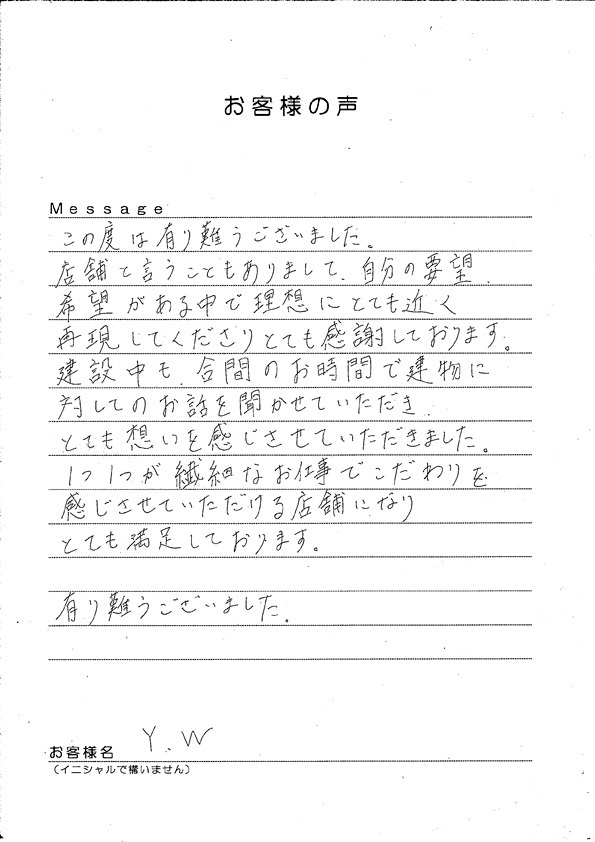 お客様の声
Message
この度は有り難うございました。
店舗と言うこともありまして、自分の要望、
希望がある中で理想にとても近く
再現してくださりとても感謝しております。
建設中も、合間のお時間で建物に
対してのお話を聞かせていただき、
とても想いを感じさせていただきました。
1つ1つが繊細なお仕事でこだわりを
感じさせていただける店舗になり
とても満足しております。
有り難うございました。
お客様名 Y.W
（イニシャルで構いません）